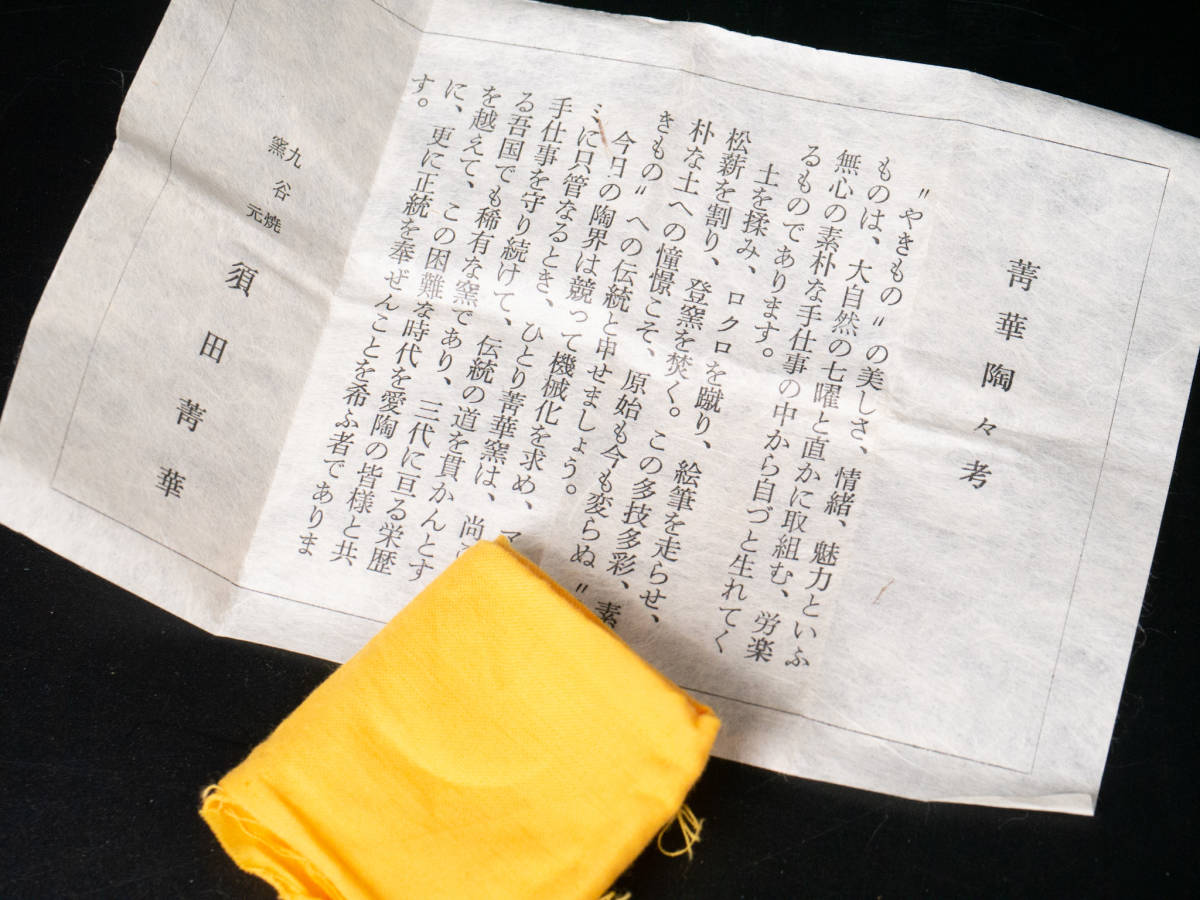 菁華陶々考
〝やきもの〟の美しさ、情緒、魅力といふ
ものは、大自然の七曜と直かに取組む、労楽
無心の素朴な手仕事の中から自づと生れてく
るものであります。
土を揉み、ロクロを蹴り、絵筆を走らせ、
松薪を割り、登窯を焚く。この多技多彩、素
朴な土への憧憬こそ、原始も今も変らぬ〝
きもの〟への伝統と申せましょう。
今日の陶界は競って機械化を求め、マ
ミに只管なるとき、ひとり菁華窯は、尚
手仕事を守り続けて、伝統の道を貫かんとす
る吾国でも稀有な窯であり、三代に亘る栄歴
を越えて、この困難な時代を愛陶の皆様と共
に、更に正統を奉ぜんことを希ふ者でありま
す。
九谷焼
窯元
須田菁華